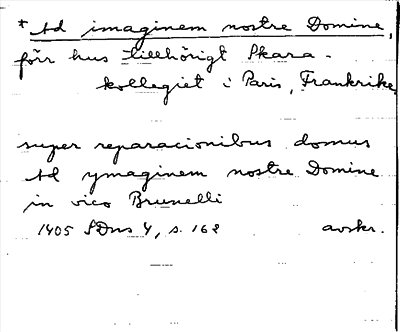 * Ad imaginem nostre Domine,
förr hus tillhörigt Skara-
kollegiet i Paris, Frankrike.
super reparacionibus domus
Ad ymaginem nostre Domine
in vico Brunelli
1405 SDns 4, s. 168 avskr.